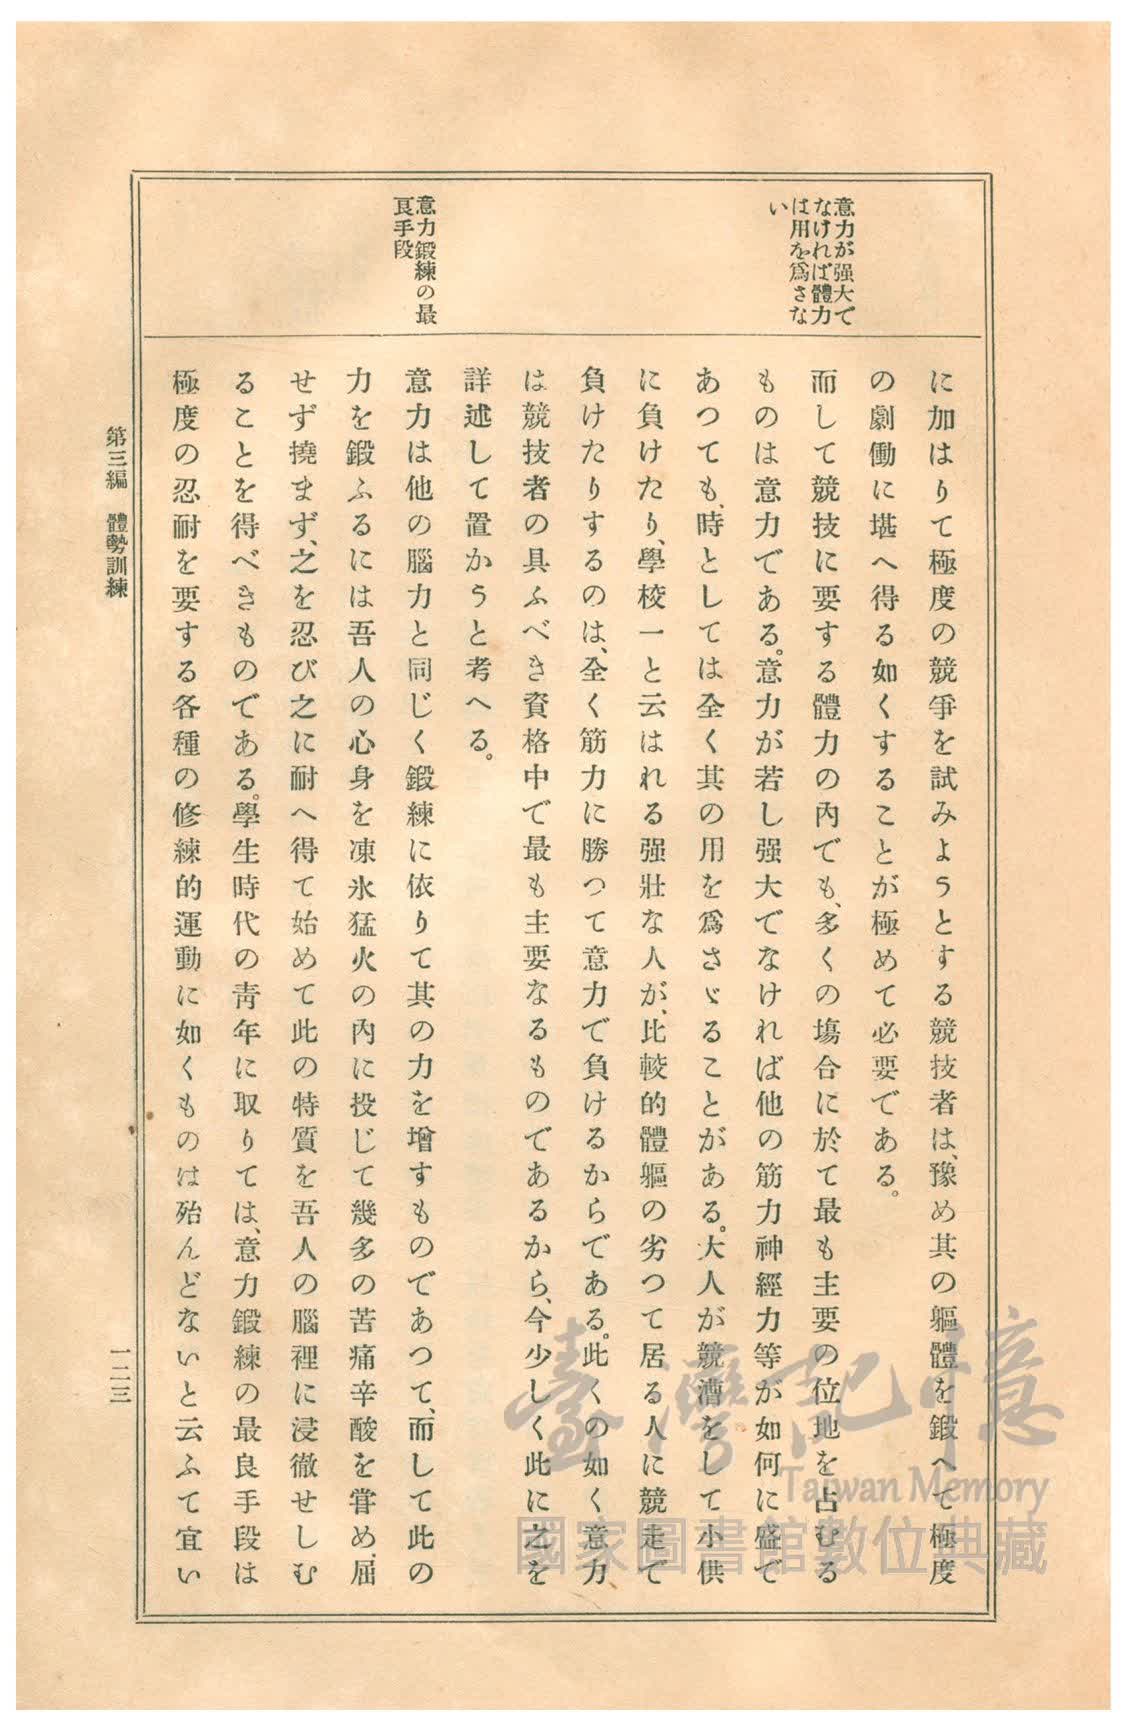 意力が强大で
なければ體力
は用を爲さな
い
意力鍛練の最
良手段
に加はりて極度の競爭を試みようとする競技者は、豫め其の軀體を鍛へて極度
の劇働に堪へ得る如くすることが極めて必要である。
而して競技に要する體力の內でも、多くの塲合に於て最も主要の位地を占むる
ものは意力である。意力が若し强大でなければ他の筋力神經力等が如何に盛で
あつても、時としては全く其の用を爲さゞることがある。大人が競漕をして小供
に負けたり、學校一と云はれる强壯な人が、比較的體軀の劣つて居る人に競走で
負けたりするのは、全く筋力に勝つて意力で負けるからである。此くの如く意力
は競技者の具ふべき資格中で最も主要なるものであるから、今少しく此に之を
詳述して置かうと考へる。
意力は他の腦力と同じく鍛練に依りて其の力を增すものであつて、而して此の
力を鍛ふるには吾人の心身を凍氷猛火の內に投じて幾多の苦痛辛酸を甞め、屈
せず撓まず、之を忍び之に耐へ得て始めて此の特質を吾人の腦裡に浸徹せしむ
ることを得べきものである。學生時代の靑年に取りては、意力鍛練の最良手段は
極度の忍耐を要する各種の修練的運動に如くものは殆んどないと云ふて宜い
第三編 體勢訓練
一二三
臺灣記憶
Taiwan Memory
國家圖書館數位典藏